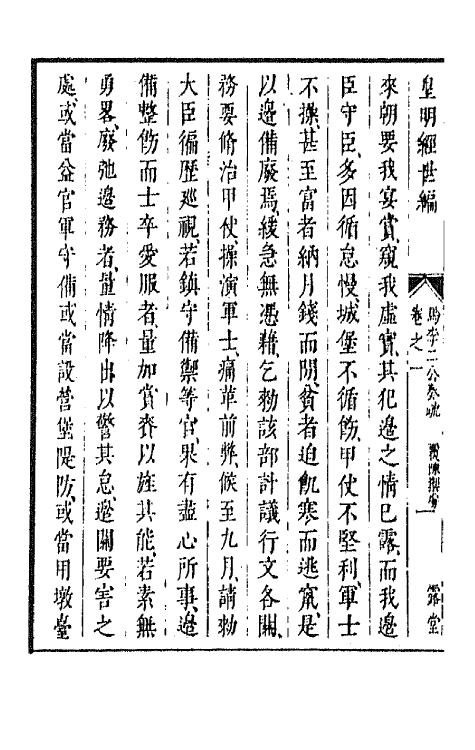 皇明經世編
卷之一
露堂
來朝要我宴賞、窺我虛實、其犯邊之情已露、而我邊
臣守臣、多因循怠慢、城堡不循飭、甲仗不堅利、軍士
不操、甚至富者納月錢而閒、貧者迫飢寒而逃竄、是
以邊備廢焉、緩急無憑藉、乞勑該部計議行文各關、
務要脩治甲仗操演軍士、痛革前弊、候至九月、請勑
大臣徧歷巡視、若鎮守備禦等官、果有盡心所事、邊
備整飭而士卒愛服者、量加賞賚以旌其能、若素無
勇畧、廢弛邊務者、量情降出以警其怠、邊關要害之
處、或當益官軍守備或當設營堡隄防、或當用墩臺